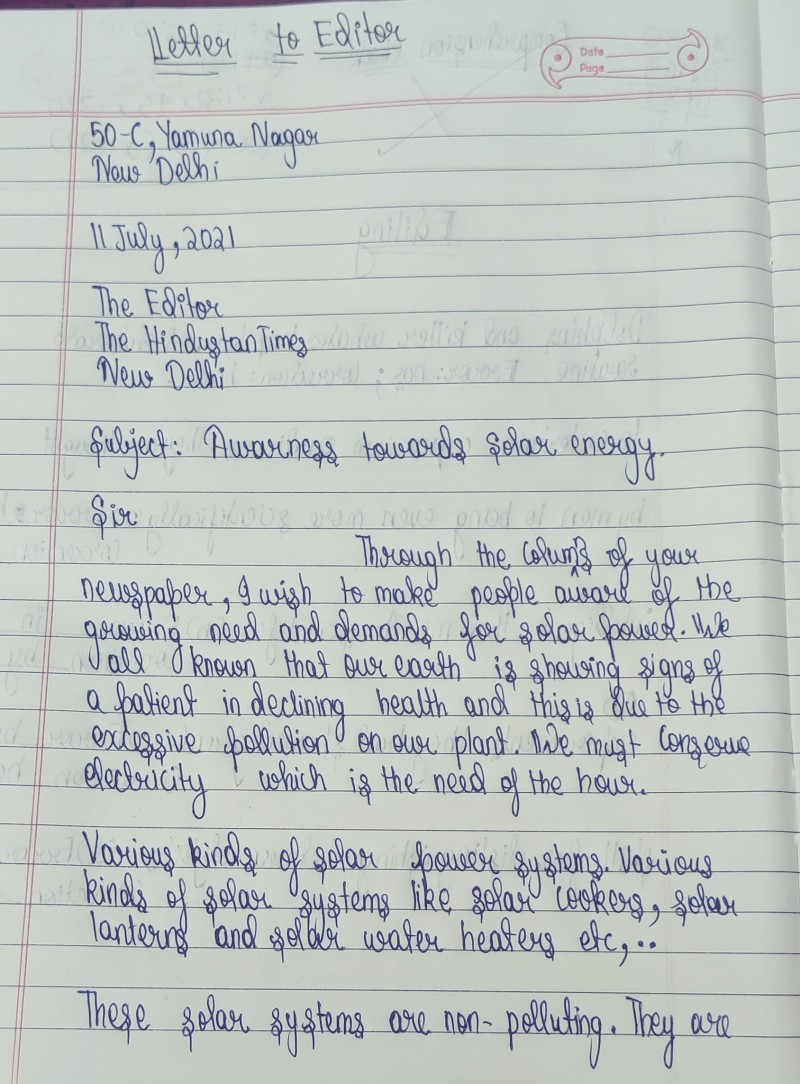 Letter to Editor
Date
Page
50-C, Yamuna Nagar
New Delhi
11 July, 2021
The Editor
The Hindustan Times
New Delhi
Subject: Awarness towards Solar energy.
Sir
Through the Colums of your
newspaper, I wish to make people aware of the
growing need and demands for solar power. We
all known that our earth is showing signs of
a patient in declining health and this is due to the
excessive pollution on our plant. We must conserve
electricity which is the need of the hour.
Various kinds of solar power systems. Various
kinds of solar systems like solar cookers, solar
lanterns and solar water heaters etc,..
These solar systems are non-polluting. They are